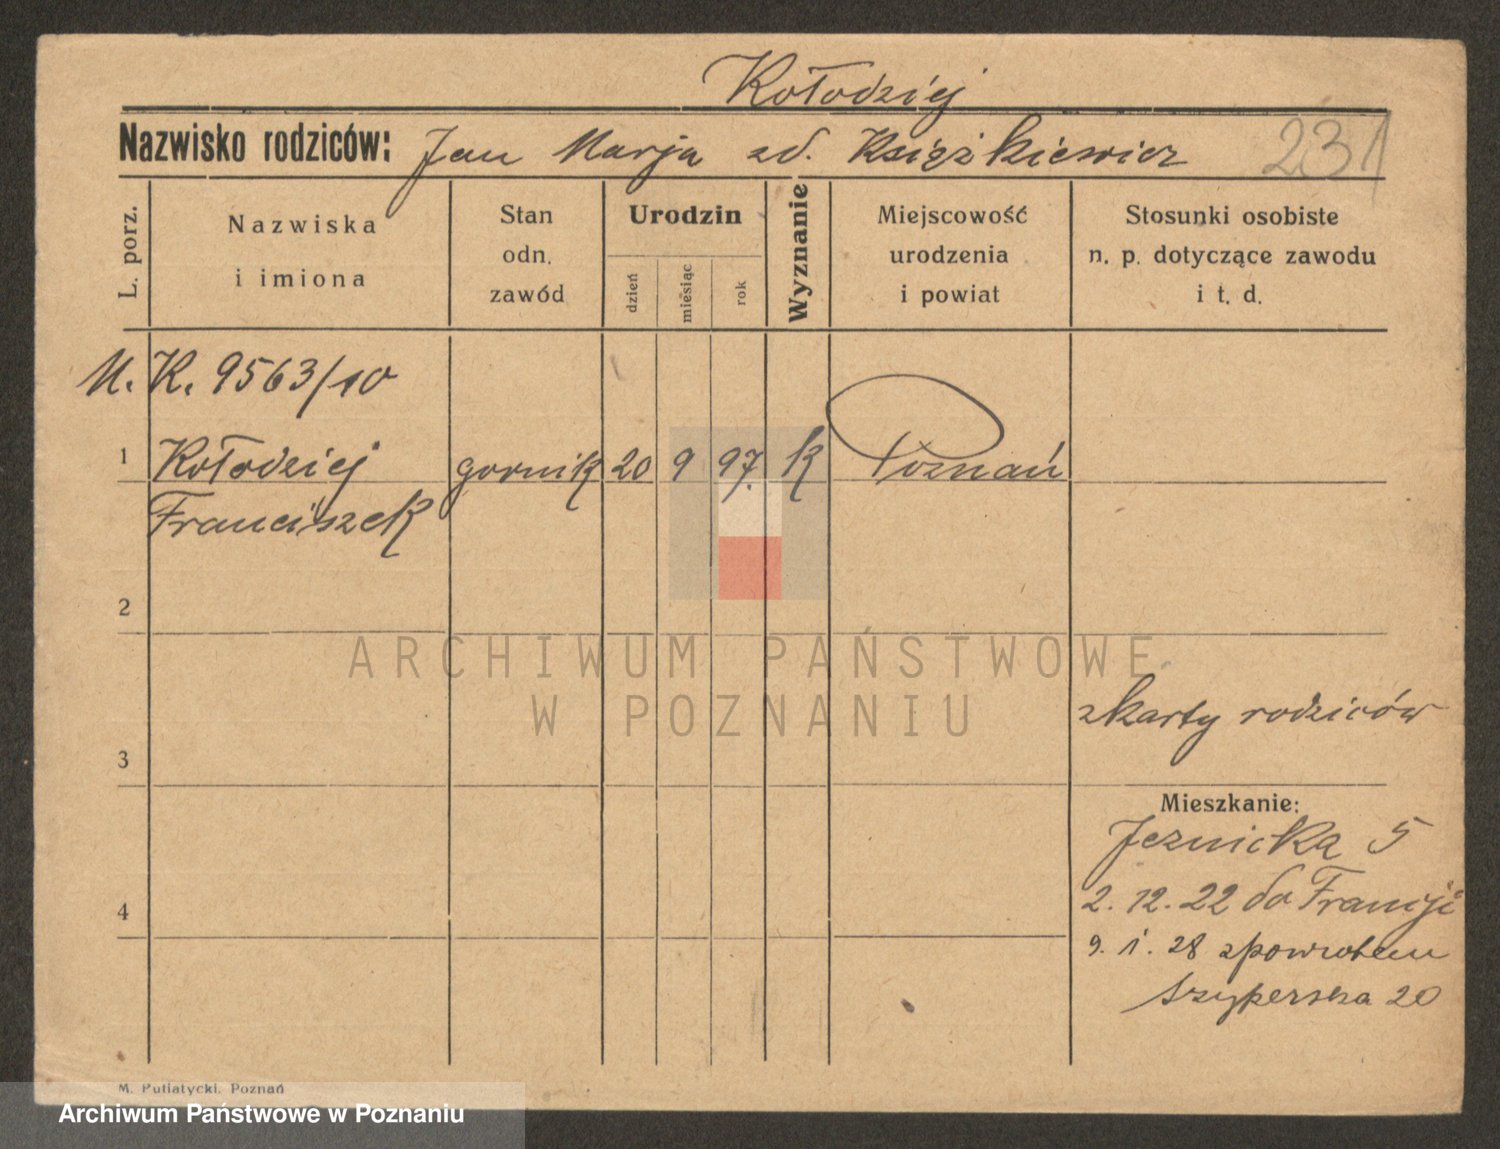 Kołodziej
Nazwisko rodziców: Jan Marja zd. Książkiewicz 231
L. porz.
Nazwiska i imiona
Stan odn. zawód
Urodzin
dzień
miesiąc
rok
Wyznanie
Miejscowość urodzenia i powiat
Stosunki osobiste n. p. dotyczące zawodu i t. d.
U. K. 9563/10
1 Kołodziej gornik 20 9 97. k Poznań
Franciszek
2
ARCHIWUM PAŃSTWOWE
W POZNANIU
z karty rodziców
3
Mieszkanie:
Jeznicka 5
2. 12. 22 do Francji
4
9. 1. 28 zpowrotem
Szyperska 20
M. Putiatycki, Poznań
Archiwum Państwowe w Poznaniu